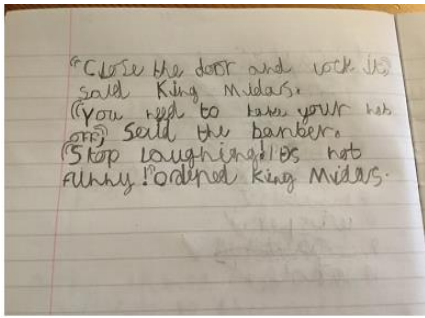 "Close the door and lock it"
said King Midas.
"You need to take your hat
off," Said the barber.
"Stop laughing! its not
funny!" ordered King Midas.